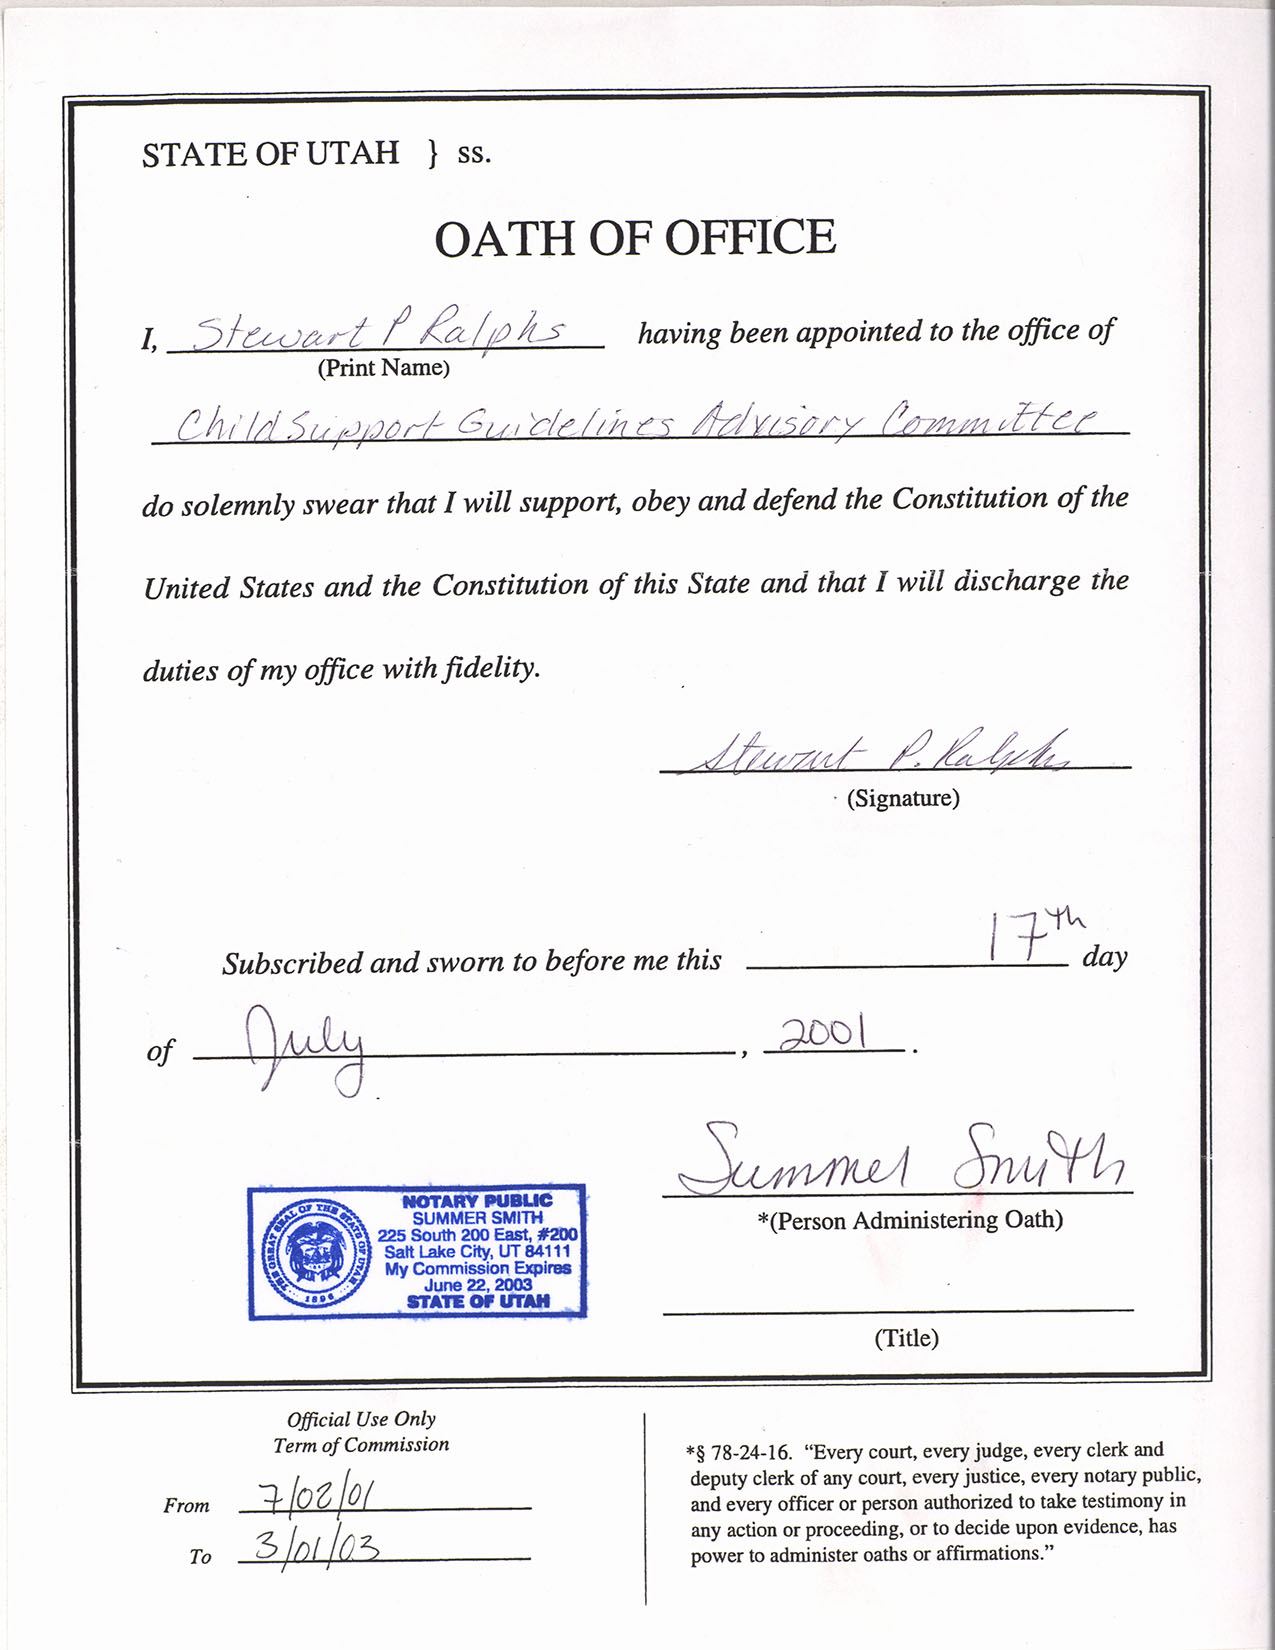 STATE OF UTAH } ss.
OATH OF OFFICE
I, Stewart P Ralphs having been appointed to the office of
(Print Name)
Child Support Guidelines Advisory Committee
do solemnly swear that I will support, obey and defend the Constitution of the
United States and the Constitution of this State and that I will discharge the
duties of my office with fidelity.
Stewart P. Ralphs
(Signature)
Subscribed and sworn to before me this 17th day
of July, 2001.
Summer Smith
*(Person Administering Oath)
THE GREAT SEAL OF THE STATE OF UTAH
1896
NOTARY PUBLIC
SUMMER SMITH
225 South 200 East, #200
Salt Lake City, UT 84111
My Commission Expires
June 22, 2003
STATE OF UTAH
(Title)
Official Use Only
Term of Commission
From 7/02/01
To 3/01/03
*§ 78-24-16. “Every court, every judge, every clerk and
deputy clerk of any court, every justice, every notary public,
and every officer or person authorized to take testimony in
any action or proceeding, or to decide upon evidence, has
power to administer oaths or affirmations.”